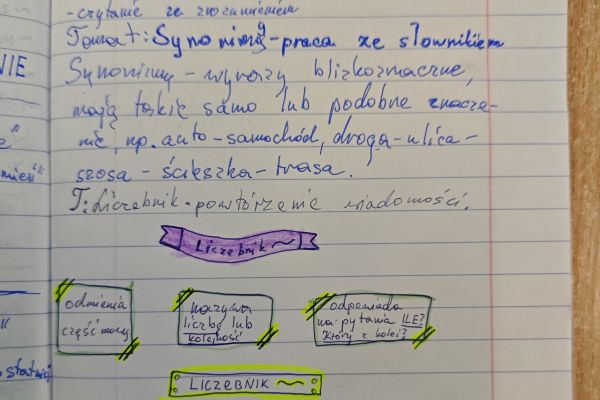 -czytanie ze zrozumieniem
Temat: Synonimy-praca ze słownikiem
Synonimy - wyrazy blizkoznaczne,
mają takie samo lub podobne znacze-
nie, np. auto - samochód, droga - ulica -
szosa - ścieszka - trasa.
T: Liczebnik - powtórzenie wiadomości.
Liczebnik ~
odmienia
część mowy
nazywa
liczbę lub
kolejność
odpowiada
na pytania ILE?
Który z kolei?
LICZEBNIK ~
NIE